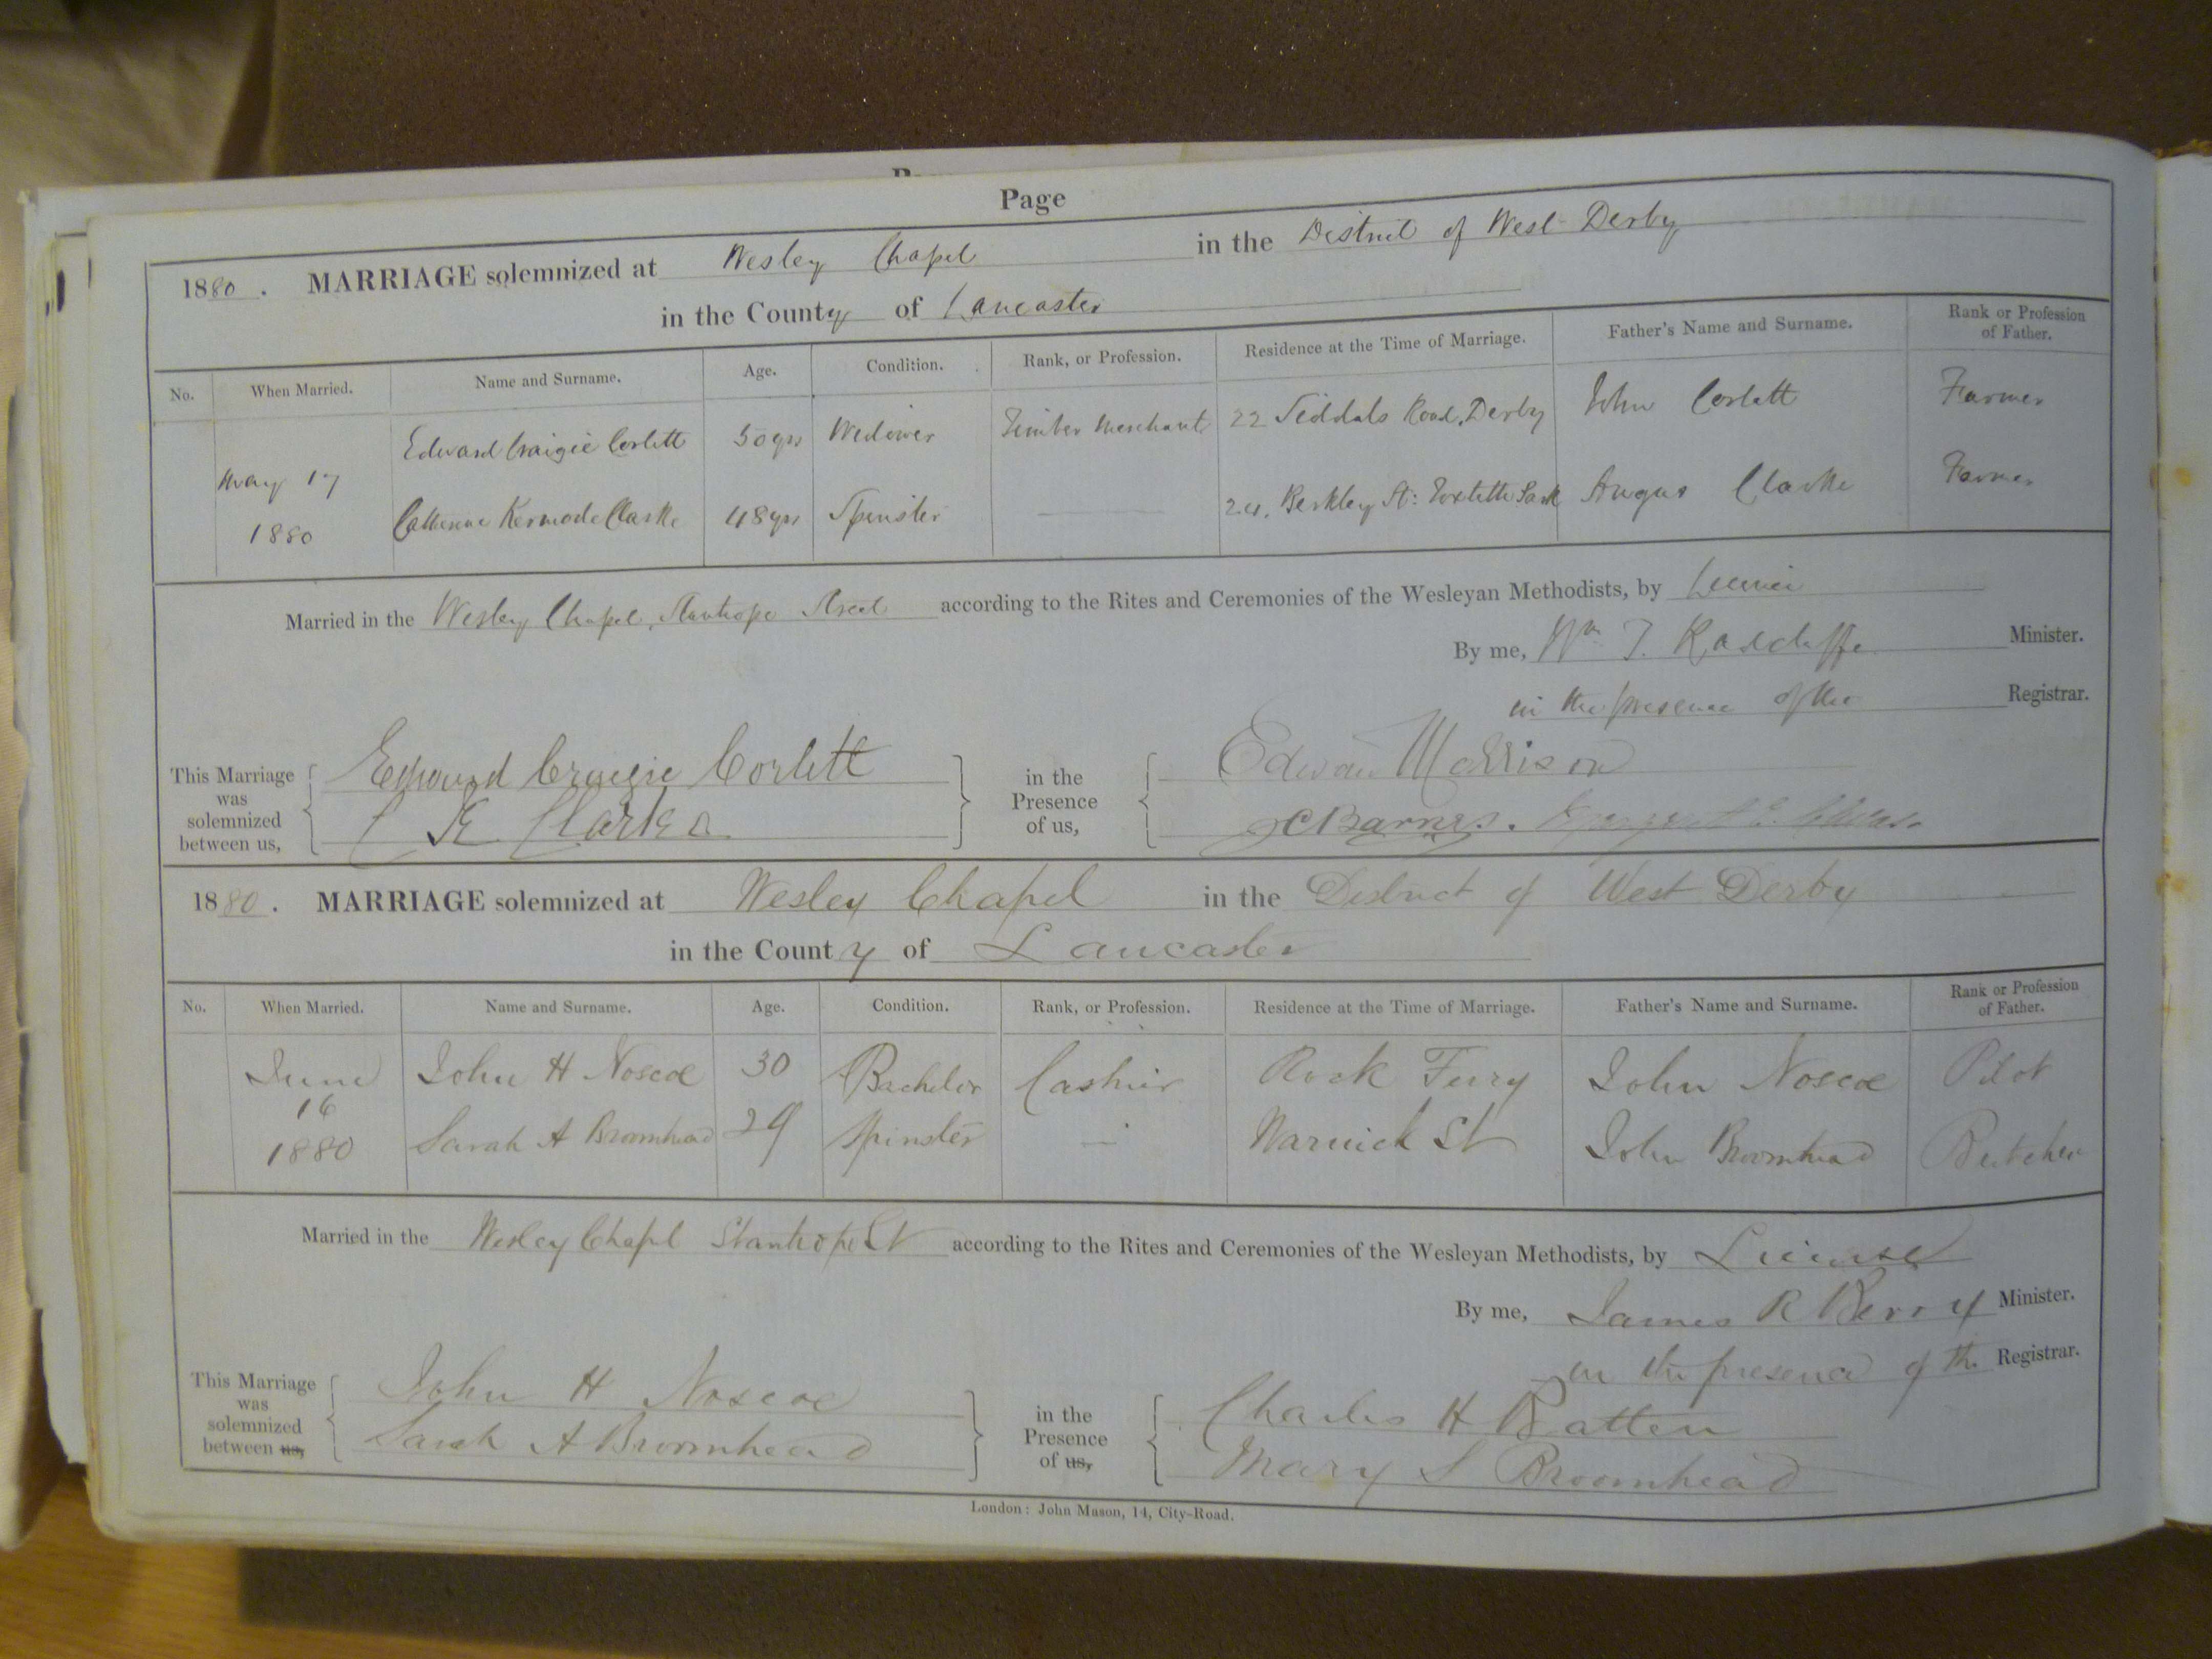 Page
1880. MARRIAGE solemnized at Wesley Chapel in the District of West Derby
in the County of Lancaster
No. When Married. Name and Surname. Age. Condition. Rank, or Profession. Residence at the Time of Marriage. Father's Name and Surname. Rank or Profession of Father.
Edward Craigie Corlett 50 yrs Widower Timber Merchant 22 Siddals Road, Derby John Corlett Farmer
May 17
1880
Catherine Kermode Clarke 48 yrs Spinster 24, Berkley St: Toxteth Park Angus Clarke Farmer
Married in the Wesley Chapel, Stanhope Street according to the Rites and Ceremonies of the Wesleyan Methodists, by
By me, Wm T. Radcliffe Minister.
in the presence of the Registrar.
This Marriage was solemnized between us,
Edward Craigie Corlett
C K Clarke
in the Presence of us,
Edward Morrison
J C Barnes.
1880. MARRIAGE solemnized at Wesley Chapel in the District of West Derby
in the County of Lancaster
No. When Married. Name and Surname. Age. Condition. Rank, or Profession. Residence at the Time of Marriage. Father's Name and Surname. Rank or Profession of Father.
June
16
1880
John H Noscoe 30 Bachelor Cashier Rock Ferry John Noscoe Pilot
Sarah A Broomhead 29 Spinster — Warwick St John Broomhead Butcher
Married in the Wesley Chapel Stanhope St according to the Rites and Ceremonies of the Wesleyan Methodists, by License
By me, James R Berry Minister.
in the presence of the Registrar.
This Marriage was solemnized between us,
John H Noscoe
Sarah A Broomhead
in the Presence of us,
Charles H Batten
Mary S Broomhead
London: John Mason, 14, City-Road.